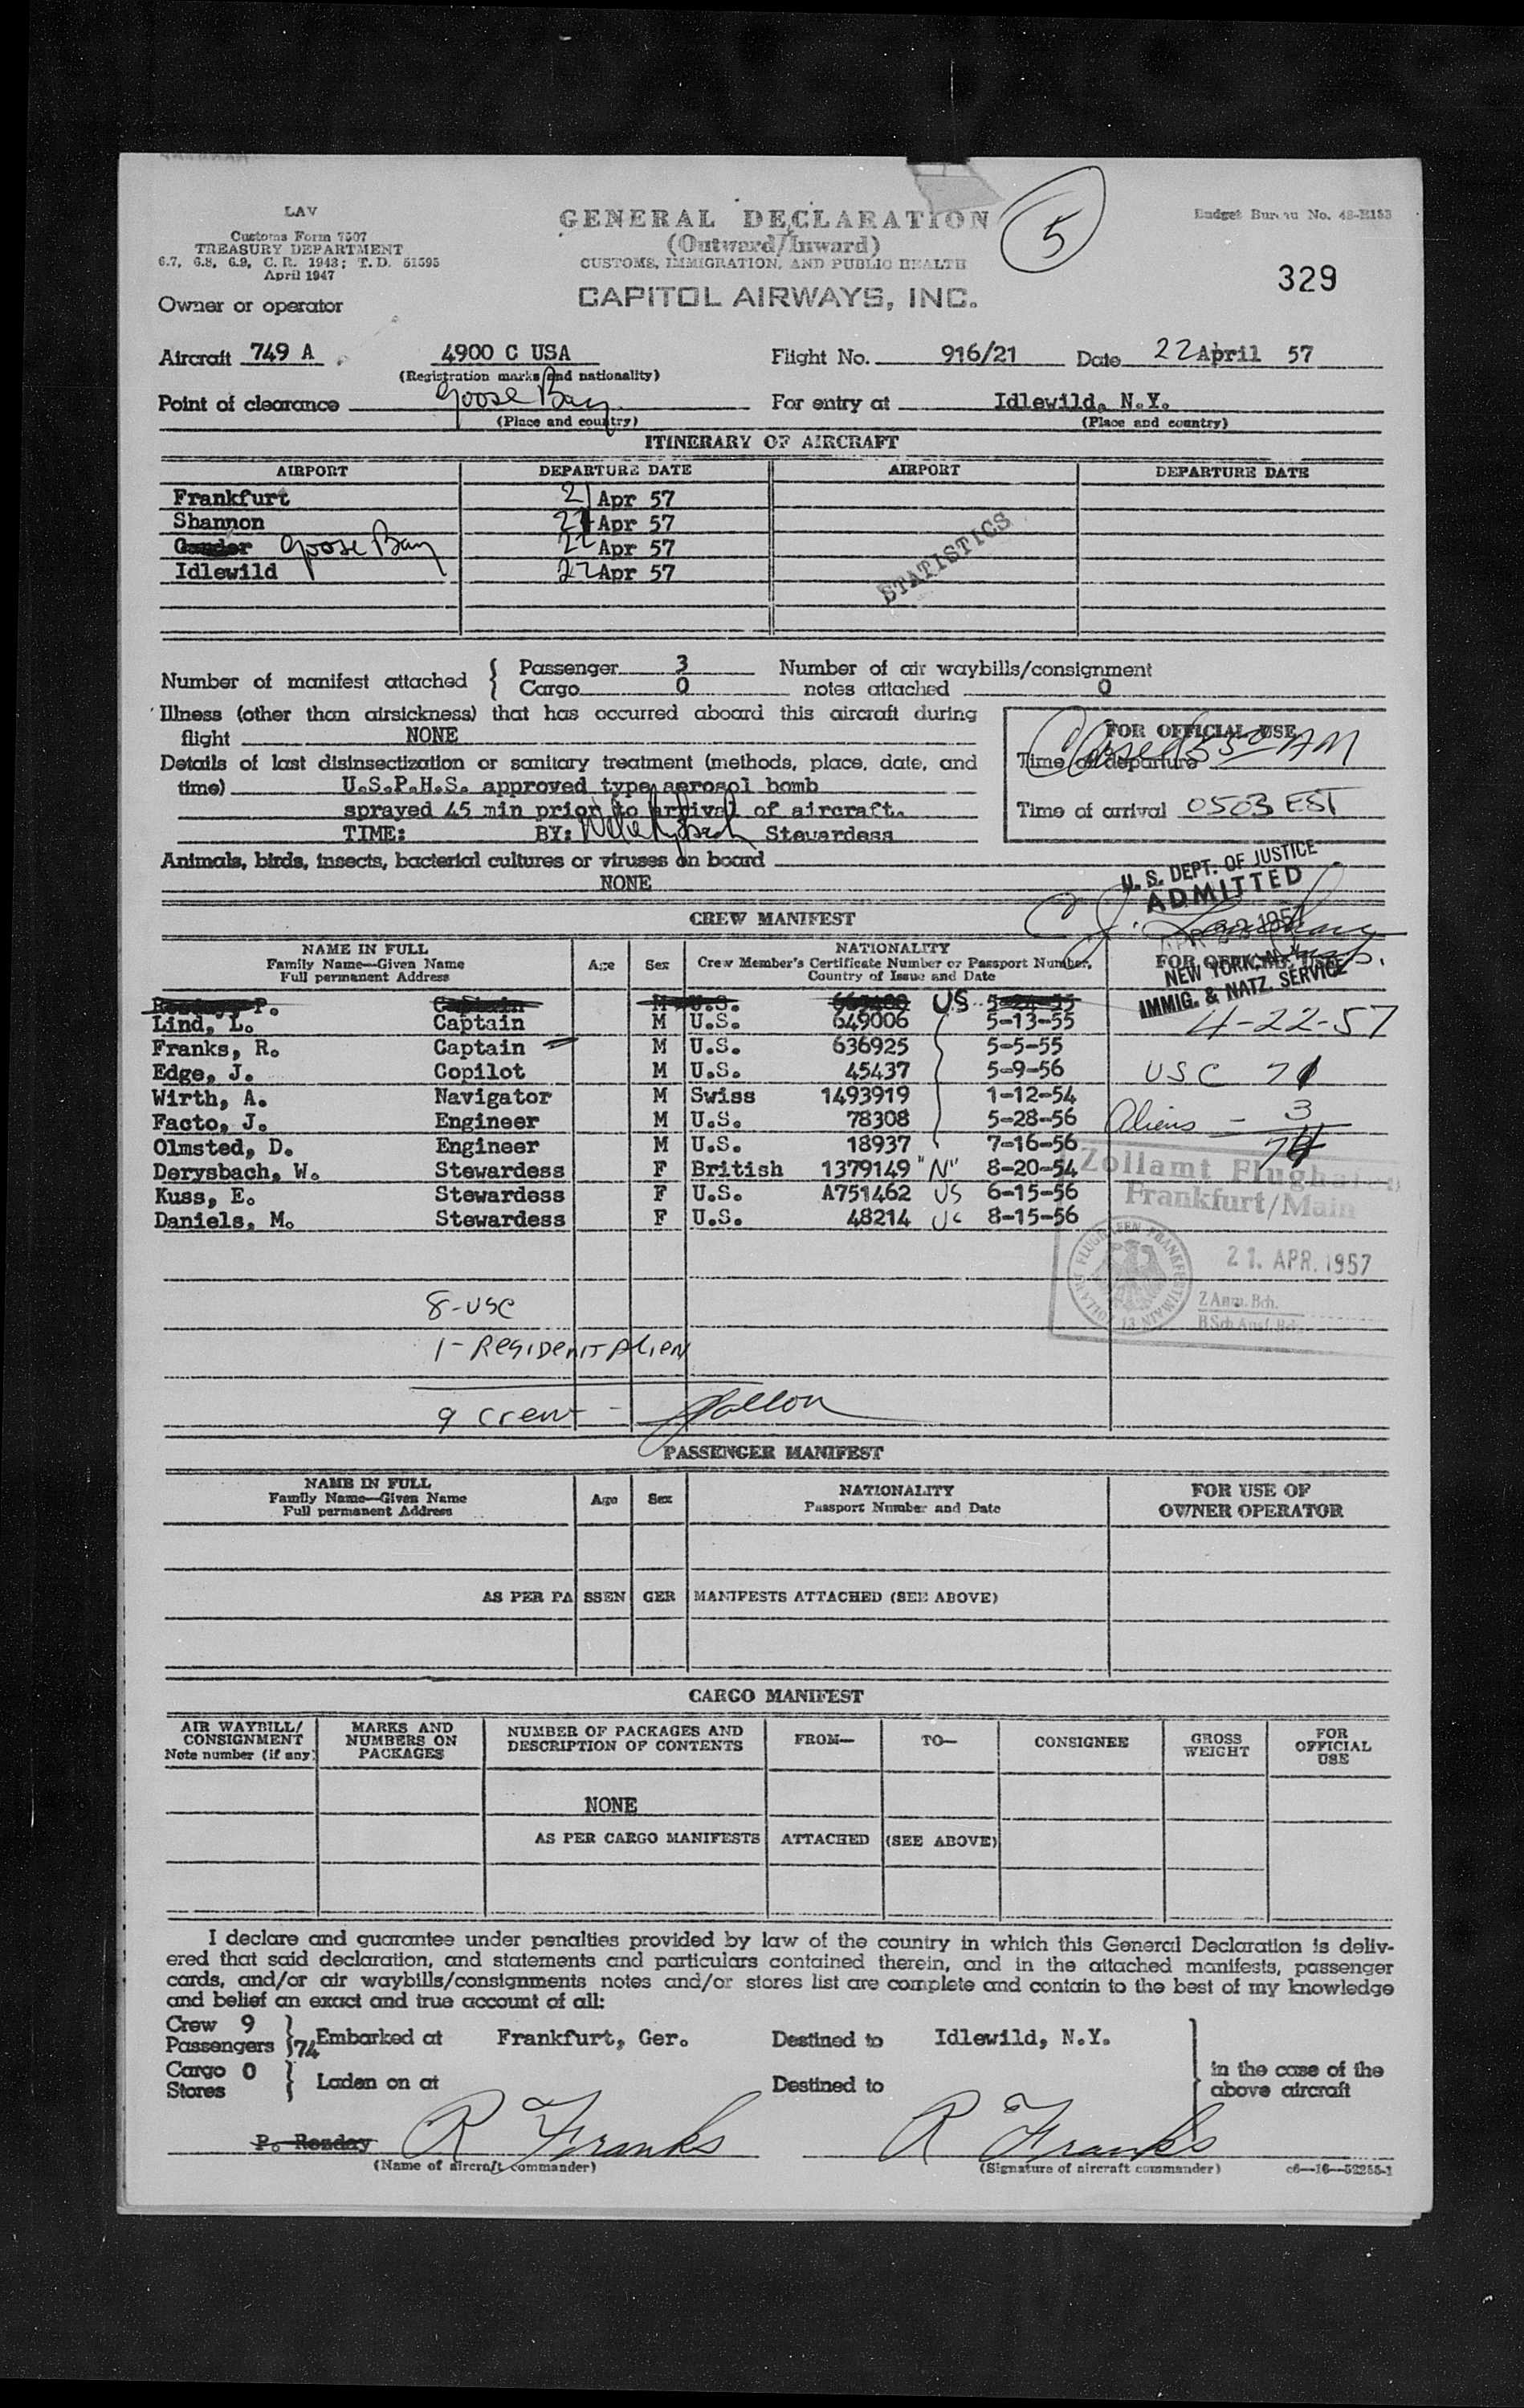 LAV
Customs Form 7507
TREASURY DEPARTMENT
6.7, 6.8, 6.9, C. R. 1943; T. D. 51595
April 1947
GENERAL DECLARATION
(Outward/Inward)
CUSTOMS, IMMIGRATION, AND PUBLIC HEALTH
CAPITOL AIRWAYS, INC.
5
Budget Bureau No.
329
Owner or operator
Aircraft 749 A 4900 C USA Flight No. 916/21 Date 22 April 57
(Registration marks and nationality)
Point of clearance Goose Bay For entry at Idlewild, N.Y.
(Place and country) (Place and country)
ITINERARY OF AIRCRAFT
AIRPORT DEPARTURE DATE AIRPORT DEPARTURE DATE
Frankfurt 21 Apr 57
Shannon Apr 57
Gander Goose Bay 22 Apr 57
Idlewild 22 Apr 57
STATISTICS
Number of manifest attached { Passenger 3 Number of air waybills/consignment
Cargo 0 notes attached 0
Illness (other than airsickness) that has occurred aboard this aircraft during
flight NONE
Details of last disinsectization or sanitary treatment (methods, place, date, and
time) U.S.P.H.S. approved type aerosol bomb
sprayed 45 min prior to arrival of aircraft.
TIME: BY: Stewardess
FOR OFFICIAL USE
Time of departure AM
Time of arrival 0503 EST
Animals, birds, insects, bacterial cultures or viruses on board
NONE
U. S. DEPT. OF JUSTICE
ADMITTED
APR 22 1957
NEW YORK, N.Y.
IMMIG. & NATZ. SERVICE
CREW MANIFEST
NAME IN FULL
Family Name—Given Name
Full permanent Address
Age Sex
NATIONALITY
Crew Member's Certificate Number or Passport Number,
Country of Issue and Date
FOR OFFICIAL USE
P. Captain M U.S. US
Lind, L. Captain M U.S. 649006 5-13-55
4-22-57
Franks, R. Captain M U.S. 636925 5-5-55
Edge, J. Copilot M U.S. 45437 5-9-56 USC 71
Wirth, A. Navigator M Swiss 1493919 1-12-54
Facto, J. Engineer M U.S. 78308 5-28-56 Aliens - 3
Olmsted, D. Engineer M U.S. 18937 7-16-56 74
Derysbach, W. Stewardess F British 1379149 "N" 8-20-54
Kuss, E. Stewardess F U.S. A751462 US 6-15-56
Daniels, M. Stewardess F U.S. 48214 US 8-15-56
Zollamt Flughafen
Frankfurt/Main
21. APR. 1957
8-USC
1-Resident Alien
9 crew -
PASSENGER MANIFEST
NAME IN FULL
Family Name—Given Name
Full permanent Address
Age Sex
NATIONALITY
Passport Number and Date
FOR USE OF
OWNER OPERATOR
AS PER PASSENGER MANIFESTS ATTACHED (SEE ABOVE)
CARGO MANIFEST
AIR WAYBILL/
CONSIGNMENT
Note number (if any)
MARKS AND
NUMBERS ON
PACKAGES
NUMBER OF PACKAGES AND
DESCRIPTION OF CONTENTS
FROM— TO— CONSIGNEE
GROSS
WEIGHT
FOR
OFFICIAL
USE
NONE
AS PER CARGO MANIFESTS ATTACHED (SEE ABOVE)
I declare and guarantee under penalties provided by law of the country in which this General Declaration is deliv-
ered that said declaration, and statements and particulars contained therein, and in the attached manifests, passenger
cards, and/or air waybills/consignments notes and/or stores list are complete and contain to the best of my knowledge
and belief an exact and true account of all:
Crew 9
Passengers 74 Embarked at Frankfurt, Ger. Destined to Idlewild, N.Y.
Cargo 0
Stores Laden on at Destined to
in the case of the
above aircraft
P. Ronday R Franks R Franks
(Name of aircraft commander) (Signature of aircraft commander) c6—16—52255-1